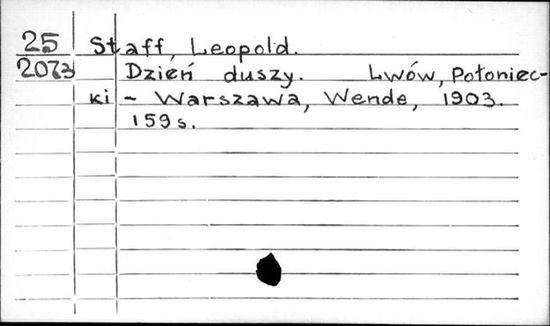 25 Staff, Leopold.
2073 Dzień duszy. Lwów, Połoniec-
ki - Warszawa, Wende, 1903.
159 s.